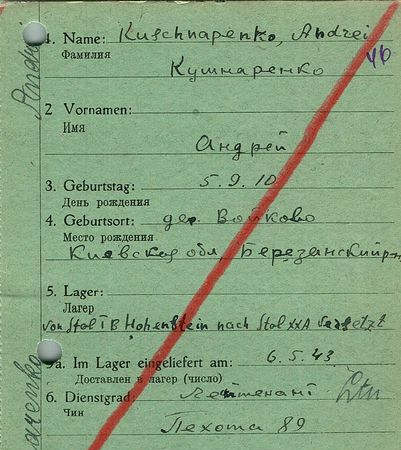 1. Name: Kuschnaренко, Andrei
46
Фамилия
Кушнаренко
2 Vornamen:
Имя
Андрей
3. Geburtstag: 5.9.10
День рождения
4. Geburtsort: дер. Войково
Место рождения
Киевская обл, Березанский рн
5. Lager:
Лагерь
von Stal IB Hohenstein nach Stal XXA versetzt
5a. Im Lager eingeliefert am: 6.5.43
Доставлен в лагерь (число)
6. Dienstgrad: Лейтенант Ltn
Чин
Пехота 89